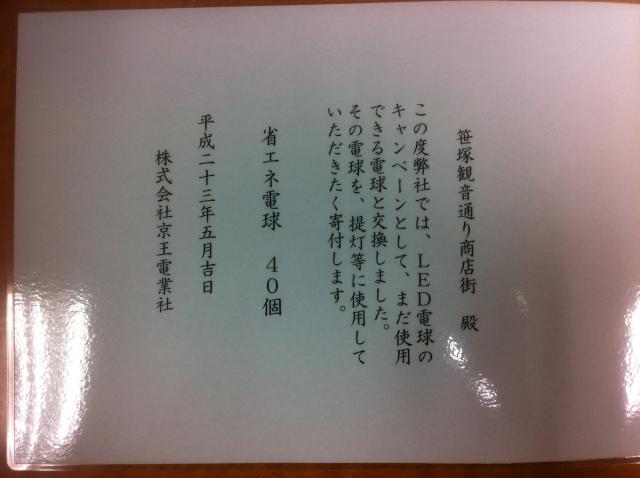 笹塚観音通り商店街　殿
この度弊社では、ＬＥＤ電球の
キャンペーンとして、まだ使用
できる電球と交換しました。
その電球を、提灯等に使用して
いただきたく寄付します。
省エネ電球　４０個
平成二十三年五月吉日
株式会社京王電業社